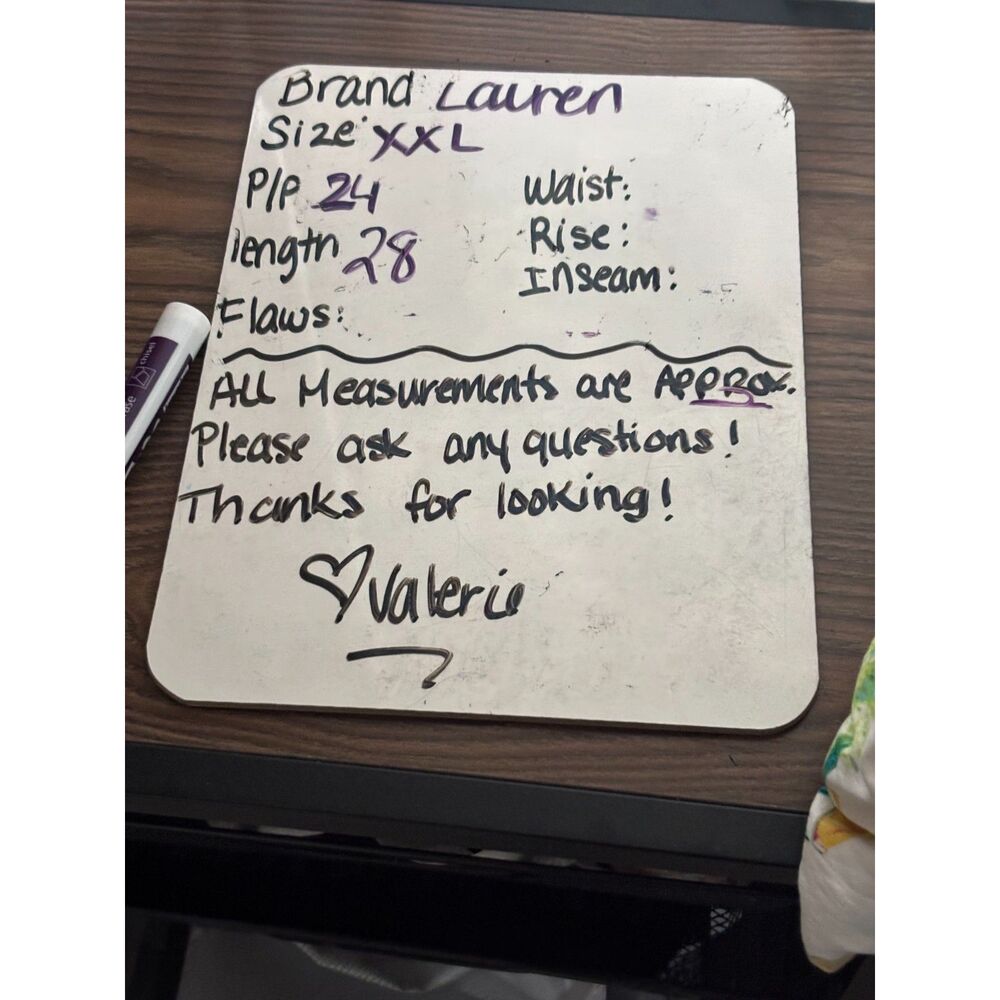 Brand: Lauren
Size: XXL
P/P 24
Waist:
length 28
Rise:
Inseam:
Flaws:
ALL Measurements are APPROX.
Please ask any questions!
Thanks for looking!
♡Valerie
chisel
use